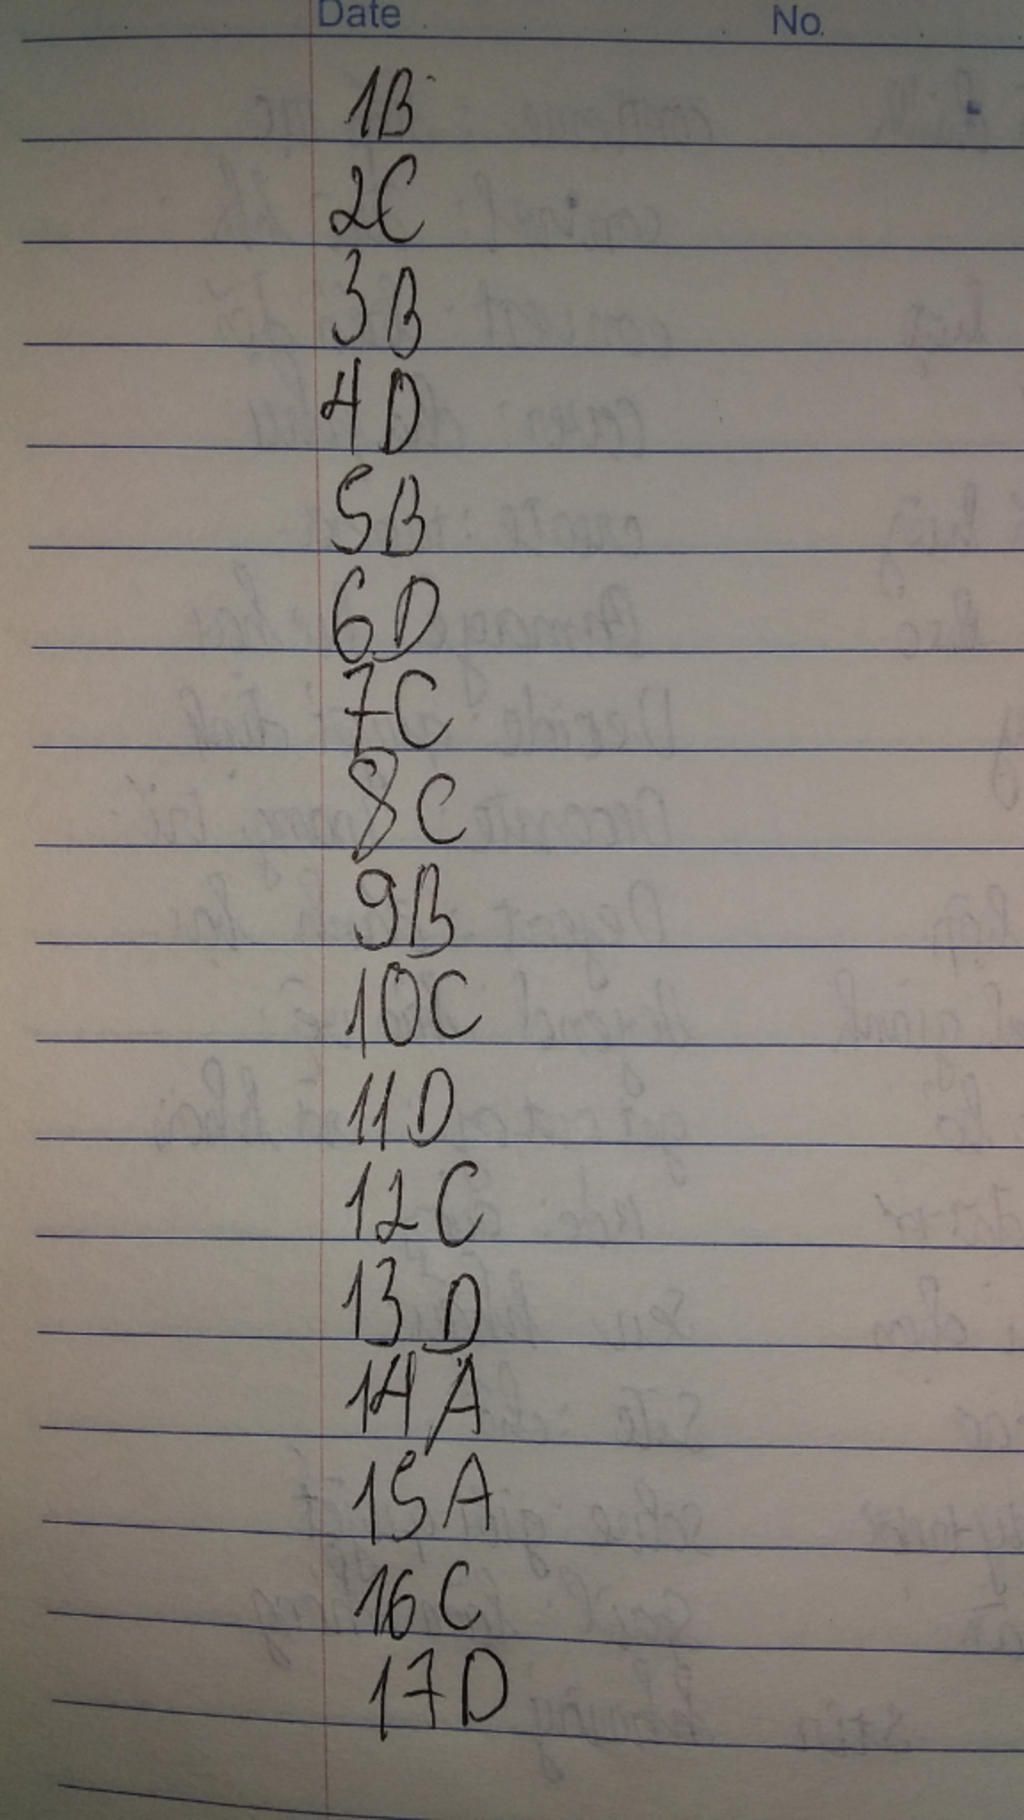 Date No.
1B
2C
3B
4D
5B
6D
7C
8C
9B
10C
11D
12C
13D
14A
15A
16C
17D